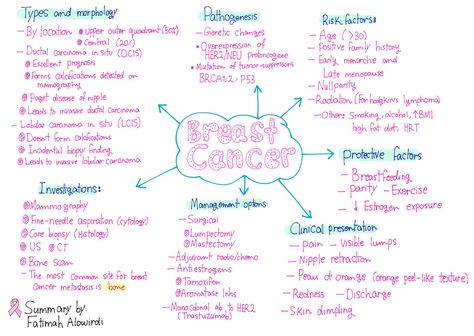 Types and morphology:
– By location → upper outer quadrant (50%)
→ Central (20%)
– Ductal carcinoma in situ (DCIS)
Excellent prognosis
Forms calcifications detected on
mamography
Paget disease of nipple
Leads to invasive ductal carcinoma
– Lobular carcinoma in situ (LCIS)
Doesn't form calcifications
Incidental biopsy finding
Leads to invasive lobular carcinoma
Pathogenesis
– Genetic changes
• Overexpression of
HER2/NEU protooncogene
• Mutation of tumor-suppressors
BRCA1,2, P53
Risk factors:
– Age (>30)
– Positive family history
– Early menarche and
Late menopause
– Nulliparity
– Radiation (For hodgkin's lymphoma)
– Other: Smoking, alcohol, ↑BMI
high fat diet, HRT
Breast
Cancer
Protective factors
– Breastfeeding
– parity – Exercise
– ↓ Estrogen exposure
Investigations:
Mammography
Fine-needle aspiration (cytology)
Core biopsy (Histology)
US CT
Bone scan
– The most common site for breast
cancer metastasis is bone
Management options
– Surgical
Lumpectomy
Mastectomy
– Adjuvant radio/chemo
– Antiestrogens
Tamoxifen
Aromatase Inhbs
– Monoclonal ab to HER2
(Trastuzumab)
Clinical presentation
– Pain – Visible lumps
– Nipple retraction
– Peau d'orange (orange peel-like texture)
– Redness – Discharge
– Skin dimpling
Summary by:
Fatimah Alowirdi